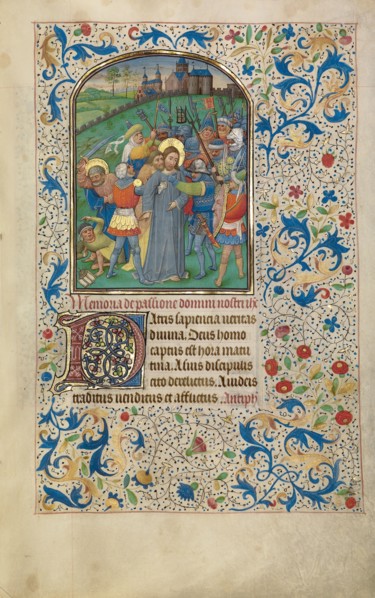 Memoria de passione domini nostri ix
Patris sapiencia ueritas
diuina. Deus homo
captus est hora matu
tina. A suis discipulis
cito derelictus. A iudeis
traditus uenditus et afflictus. Antiph